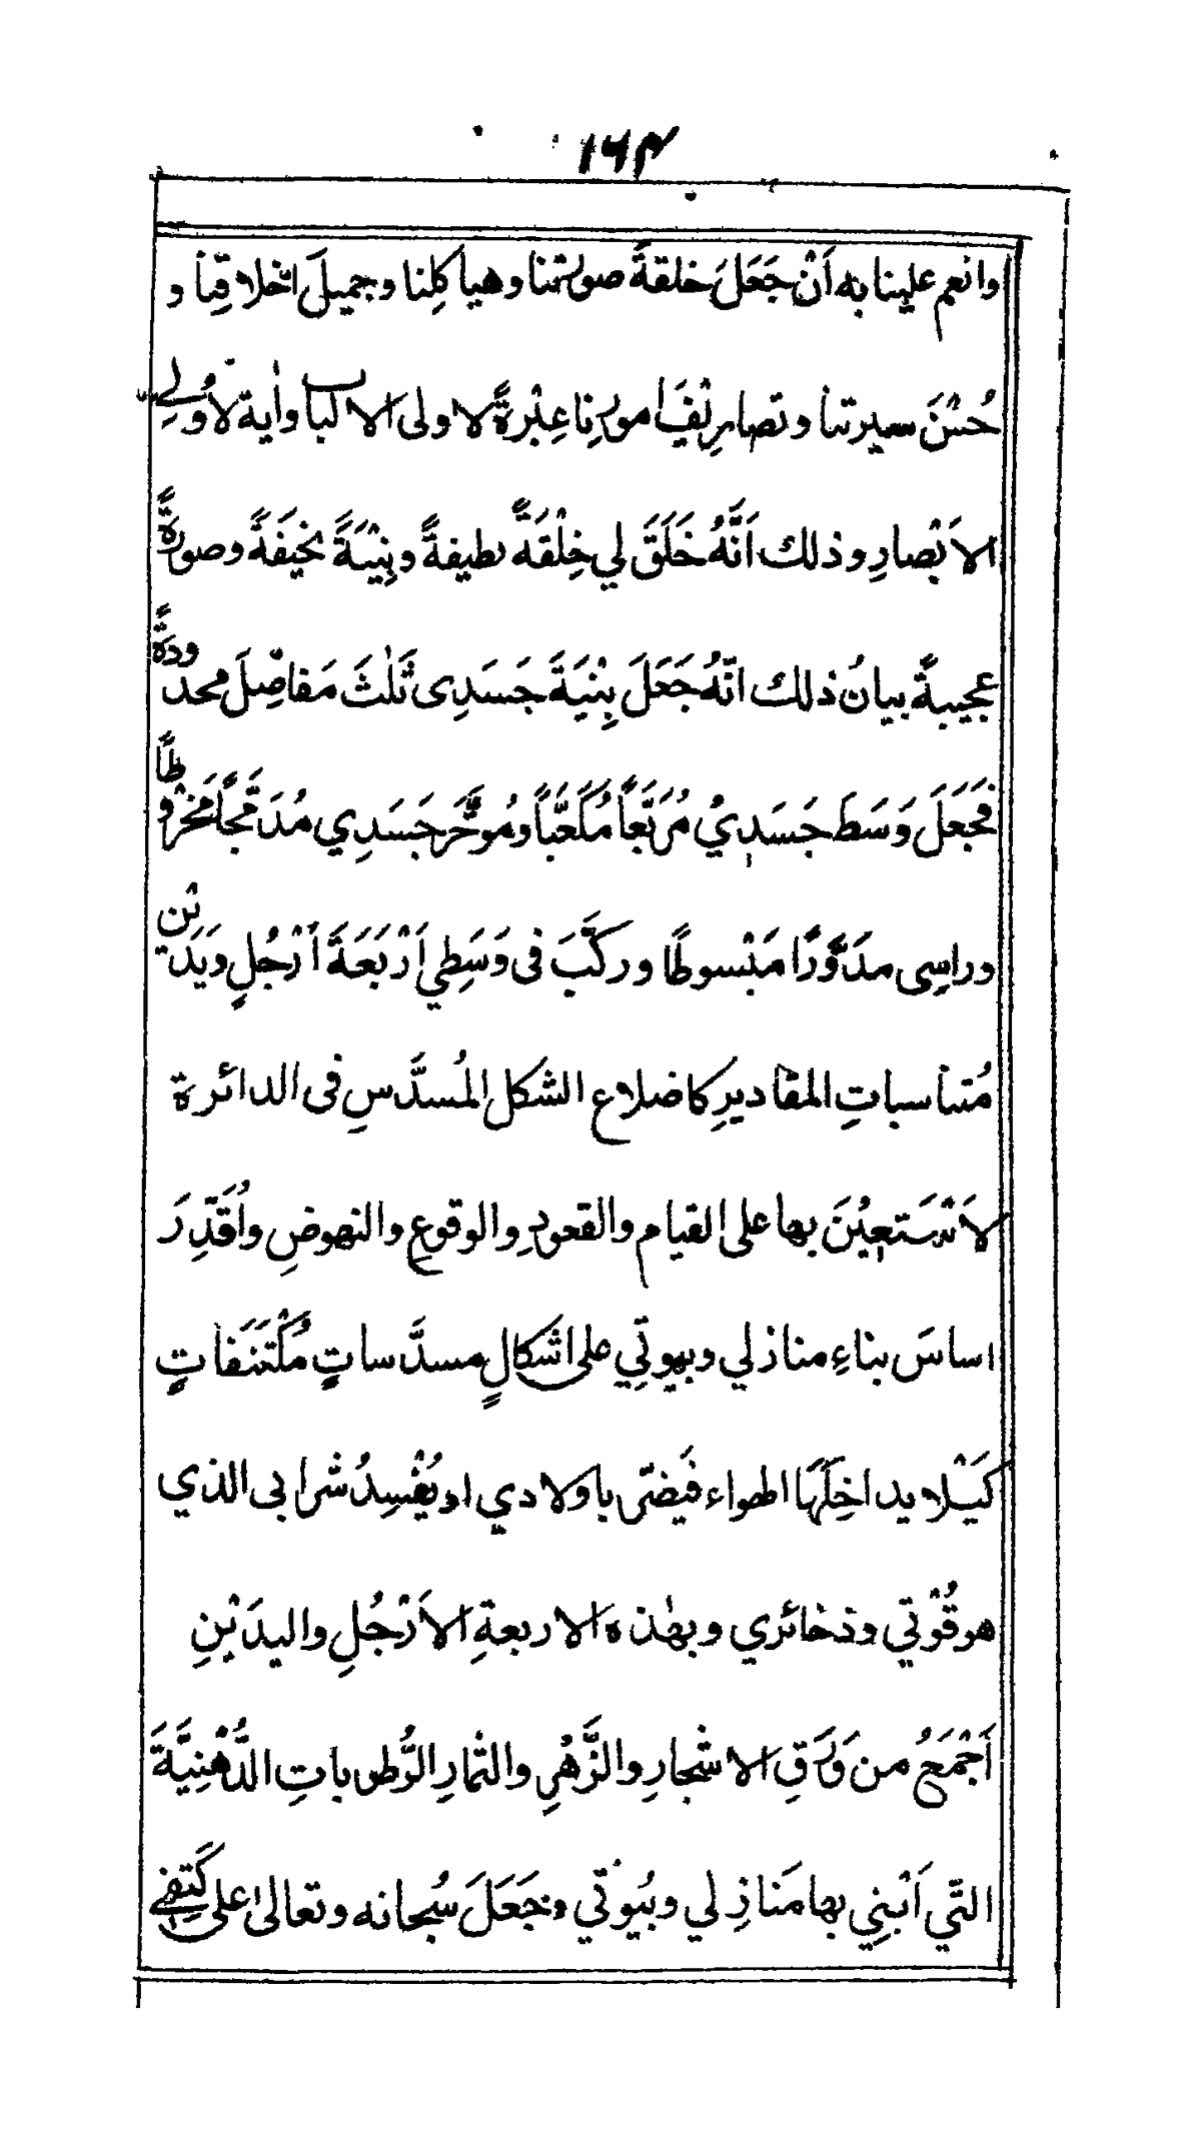 ١٦٣
وانعم علينا به اَنْ جَعَلَ خلقةً صورتنا وهياكلِنا وجميلَ اخلاقِنا و
حُسْنَ سيرتنا وتصاريْفَ امورِنا عِبْرةً لاولى الالباب واٰية لاُولِي
الاَبْصارِ وذلك اَنَّهُ خَلَقَ لي خِلْقَةً لطيفةً وبِنْيَةً نَحيفَةً وصورةً
عجيبةً بيانُ ذلك انّهُ جَعَلَ بِنْيَةَ جَسَدِى ثَلٰثَ مَفاصِلَ محدودةً
فَجَعَلَ وَسَطَ جَسَدِيْ مُرَبَّعاً مُكَعَّباً ومُوخَّرَ جَسَدِي مُدَمَّجًا مَخْرُوطًا
وراسِى مدَوَّرًا مَبْسوطًا وركَّبَ فى وَسَطِي اَرْبَعَةَ اَرْجُلٍ وَيَدَيْنِ
مُتناسباتِ المقاديرِ كاضلاع الشكل المُسدَّسِ فى الدائرة
لاَسْتَعِيْنَ بها على القيام والقعودِ والوقوع والنهوضِ واُقَدِّرَ
اساسَ بناءِ منازلي وبيوتِي على اشكالٍ مسدَّساتٍ مُكْتَنَفاتٍ
كَيْلا يداخِلَهَا الهواء فَيُضرّ باولادي او يُفْسِدُ شرابى الذي
هو قُوْتي وذخائري وبهٰذه الاربعةِ الاَرْجُلِ واليدَيْنِ
اَجْمَعُ من وَرَقِ الاشجارِ والزَّهْرِ والثمارِ الرُّطوباتِ الدُّهْنِيَّةَ
التّي اَبْنِي بها مَنازِلي وبُيُوتي وجَعَلَ سُبحانه وتعالىٰ على كَتِفِي